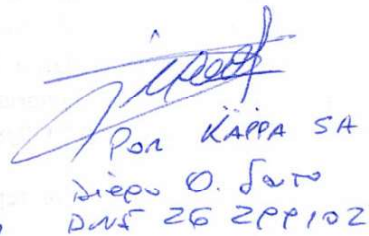 Por KAPPA SA
Diego O. Souto
DNI 26 299102